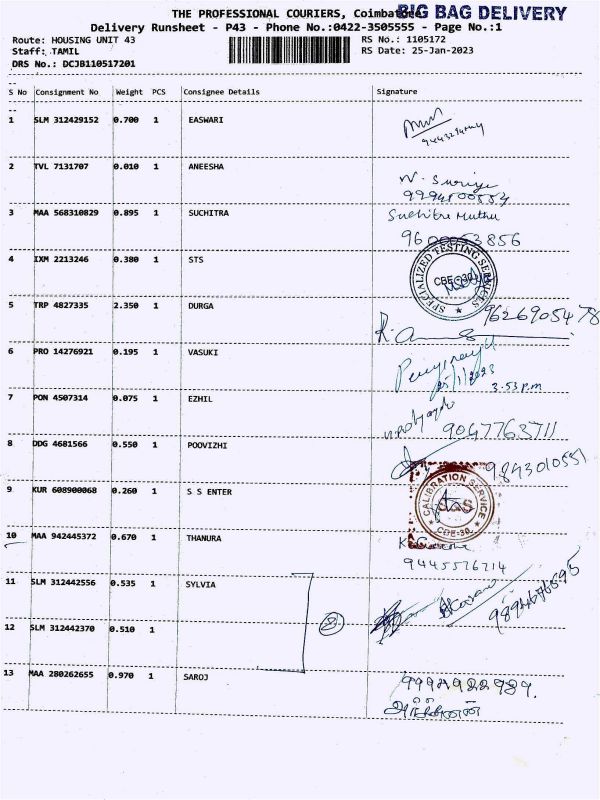 THE PROFESSIONAL COURIERS, Coimbatore BIG BAG DELIVERY
Delivery Runsheet - P43 - Phone No.:0422-3505555 - Page No.:1
Route: HOUSING UNIT 43 RS No.: 1105172
Staff: TAMIL RS Date: 25-Jan-2023
DRS No.: DCJB110517201
S No Consignment No Weight PCS Consignee Details Signature
1 SLM 312429152 0.700 1 EASWARI
2 TVL 7131707 0.010 1 ANEESHA
N. Suriya
3 MAA 568310829 0.895 1 SUCHITRA Suchitra Muthu
9600053856
4 IXM 2213246 0.380 1 STS
SPECIALIZED TESTING SERVICES CBE-30
5 TRP 4827335 2.350 1 DURGA 9626905478
6 PRO 14276921 0.195 1 VASUKI
25/1/2023 3.53 p.m
7 PON 4507314 0.075 1 EZHIL
9047763711
8 DDG 4681566 0.550 1 POOVIZHI
9843010551
9 KUR 608900068 0.260 1 S S ENTER
CALIBRATION SERVICE CBE-30
10 MAA 942445372 0.670 1 THANURA
9445576714
11 SLM 312442556 0.535 1 SYLVIA
9894676595
12 SLM 312442370 0.510 1 2
13 MAA 280262655 0.970 1 SAROJ